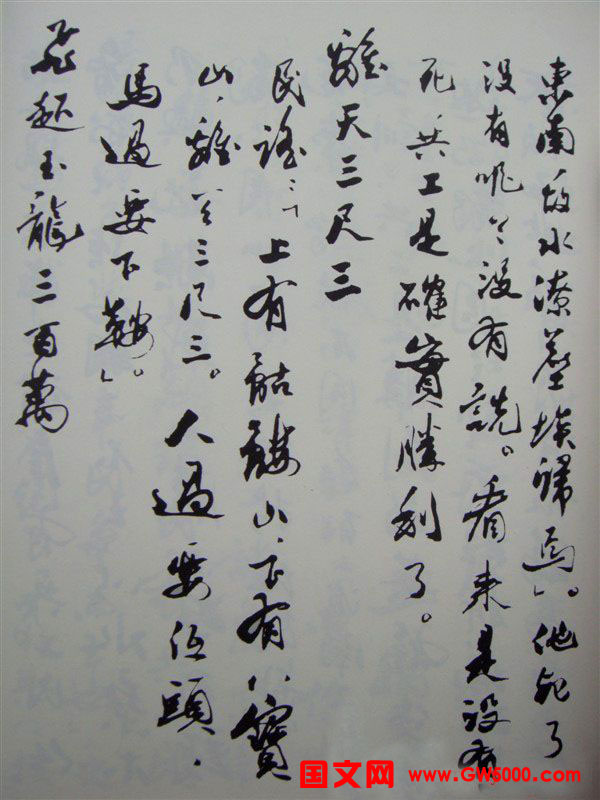 東南故水潦塵埃歸焉」。他死了
沒有呢？沒有說。看來是沒有
死，共工是確實勝利了。
離天三尺三
民謠：「上有骷髏山，下有八寶
山，離天三尺三。人過要低頭，
馬過要下鞍」。
飛起玉龍三百萬
国文网 www.GW5000.com